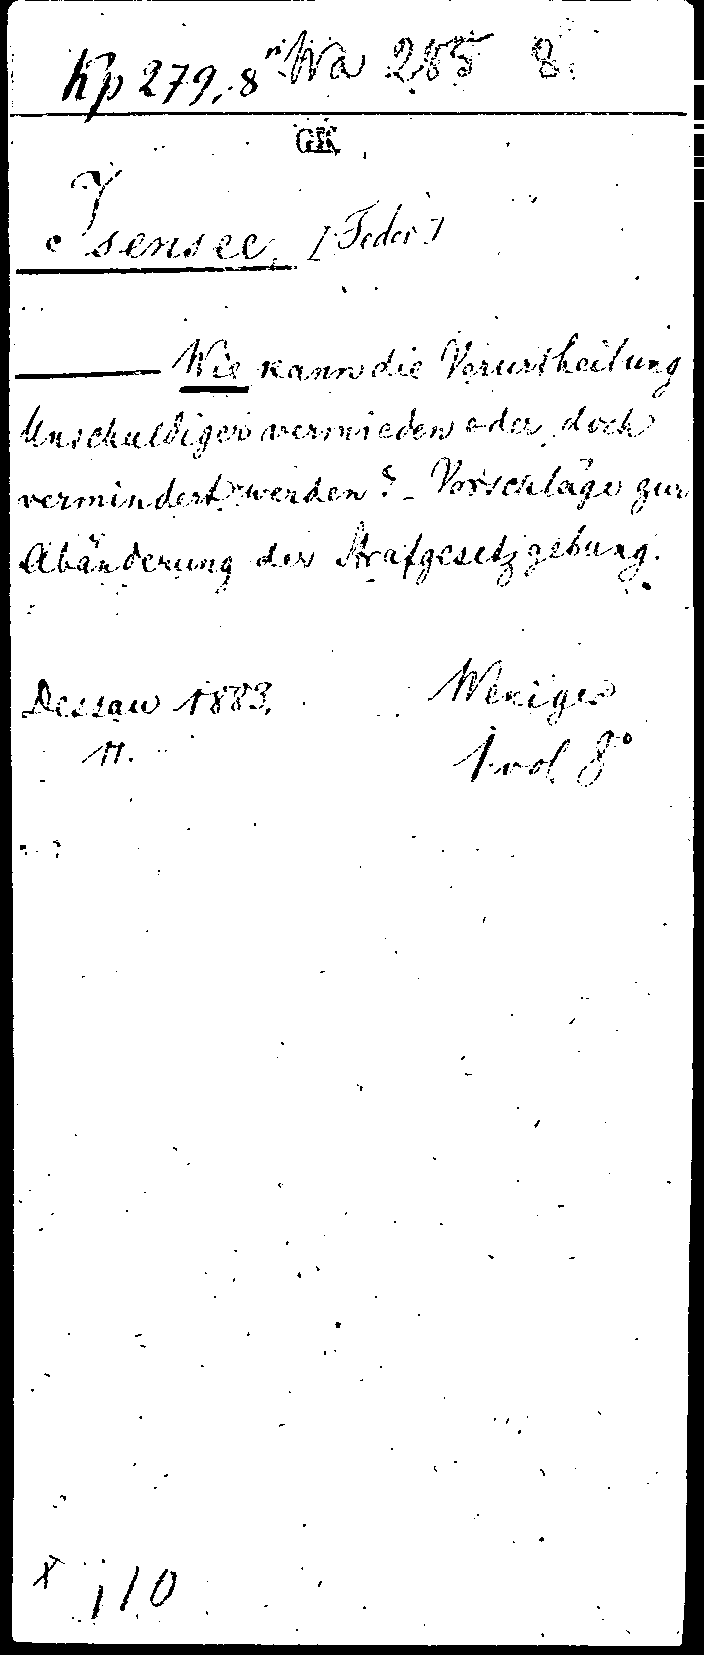 Kp 279, 8 n Wa 285 8.
GK
Isensee, [Feder]
Wie kann die Verurtheilung
Unschuldiger vermieden oder doch
vermindert werden? - Vorschläge zur
Abänderung der Strafgesetzgebung.
Dessau 1883. Weniger
11. 1 vol 8°
x 110